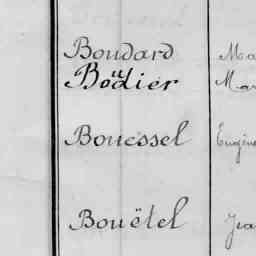 Boudard Ma
Boudier Mar
Bouessel Eugène
Bouëtel Jea